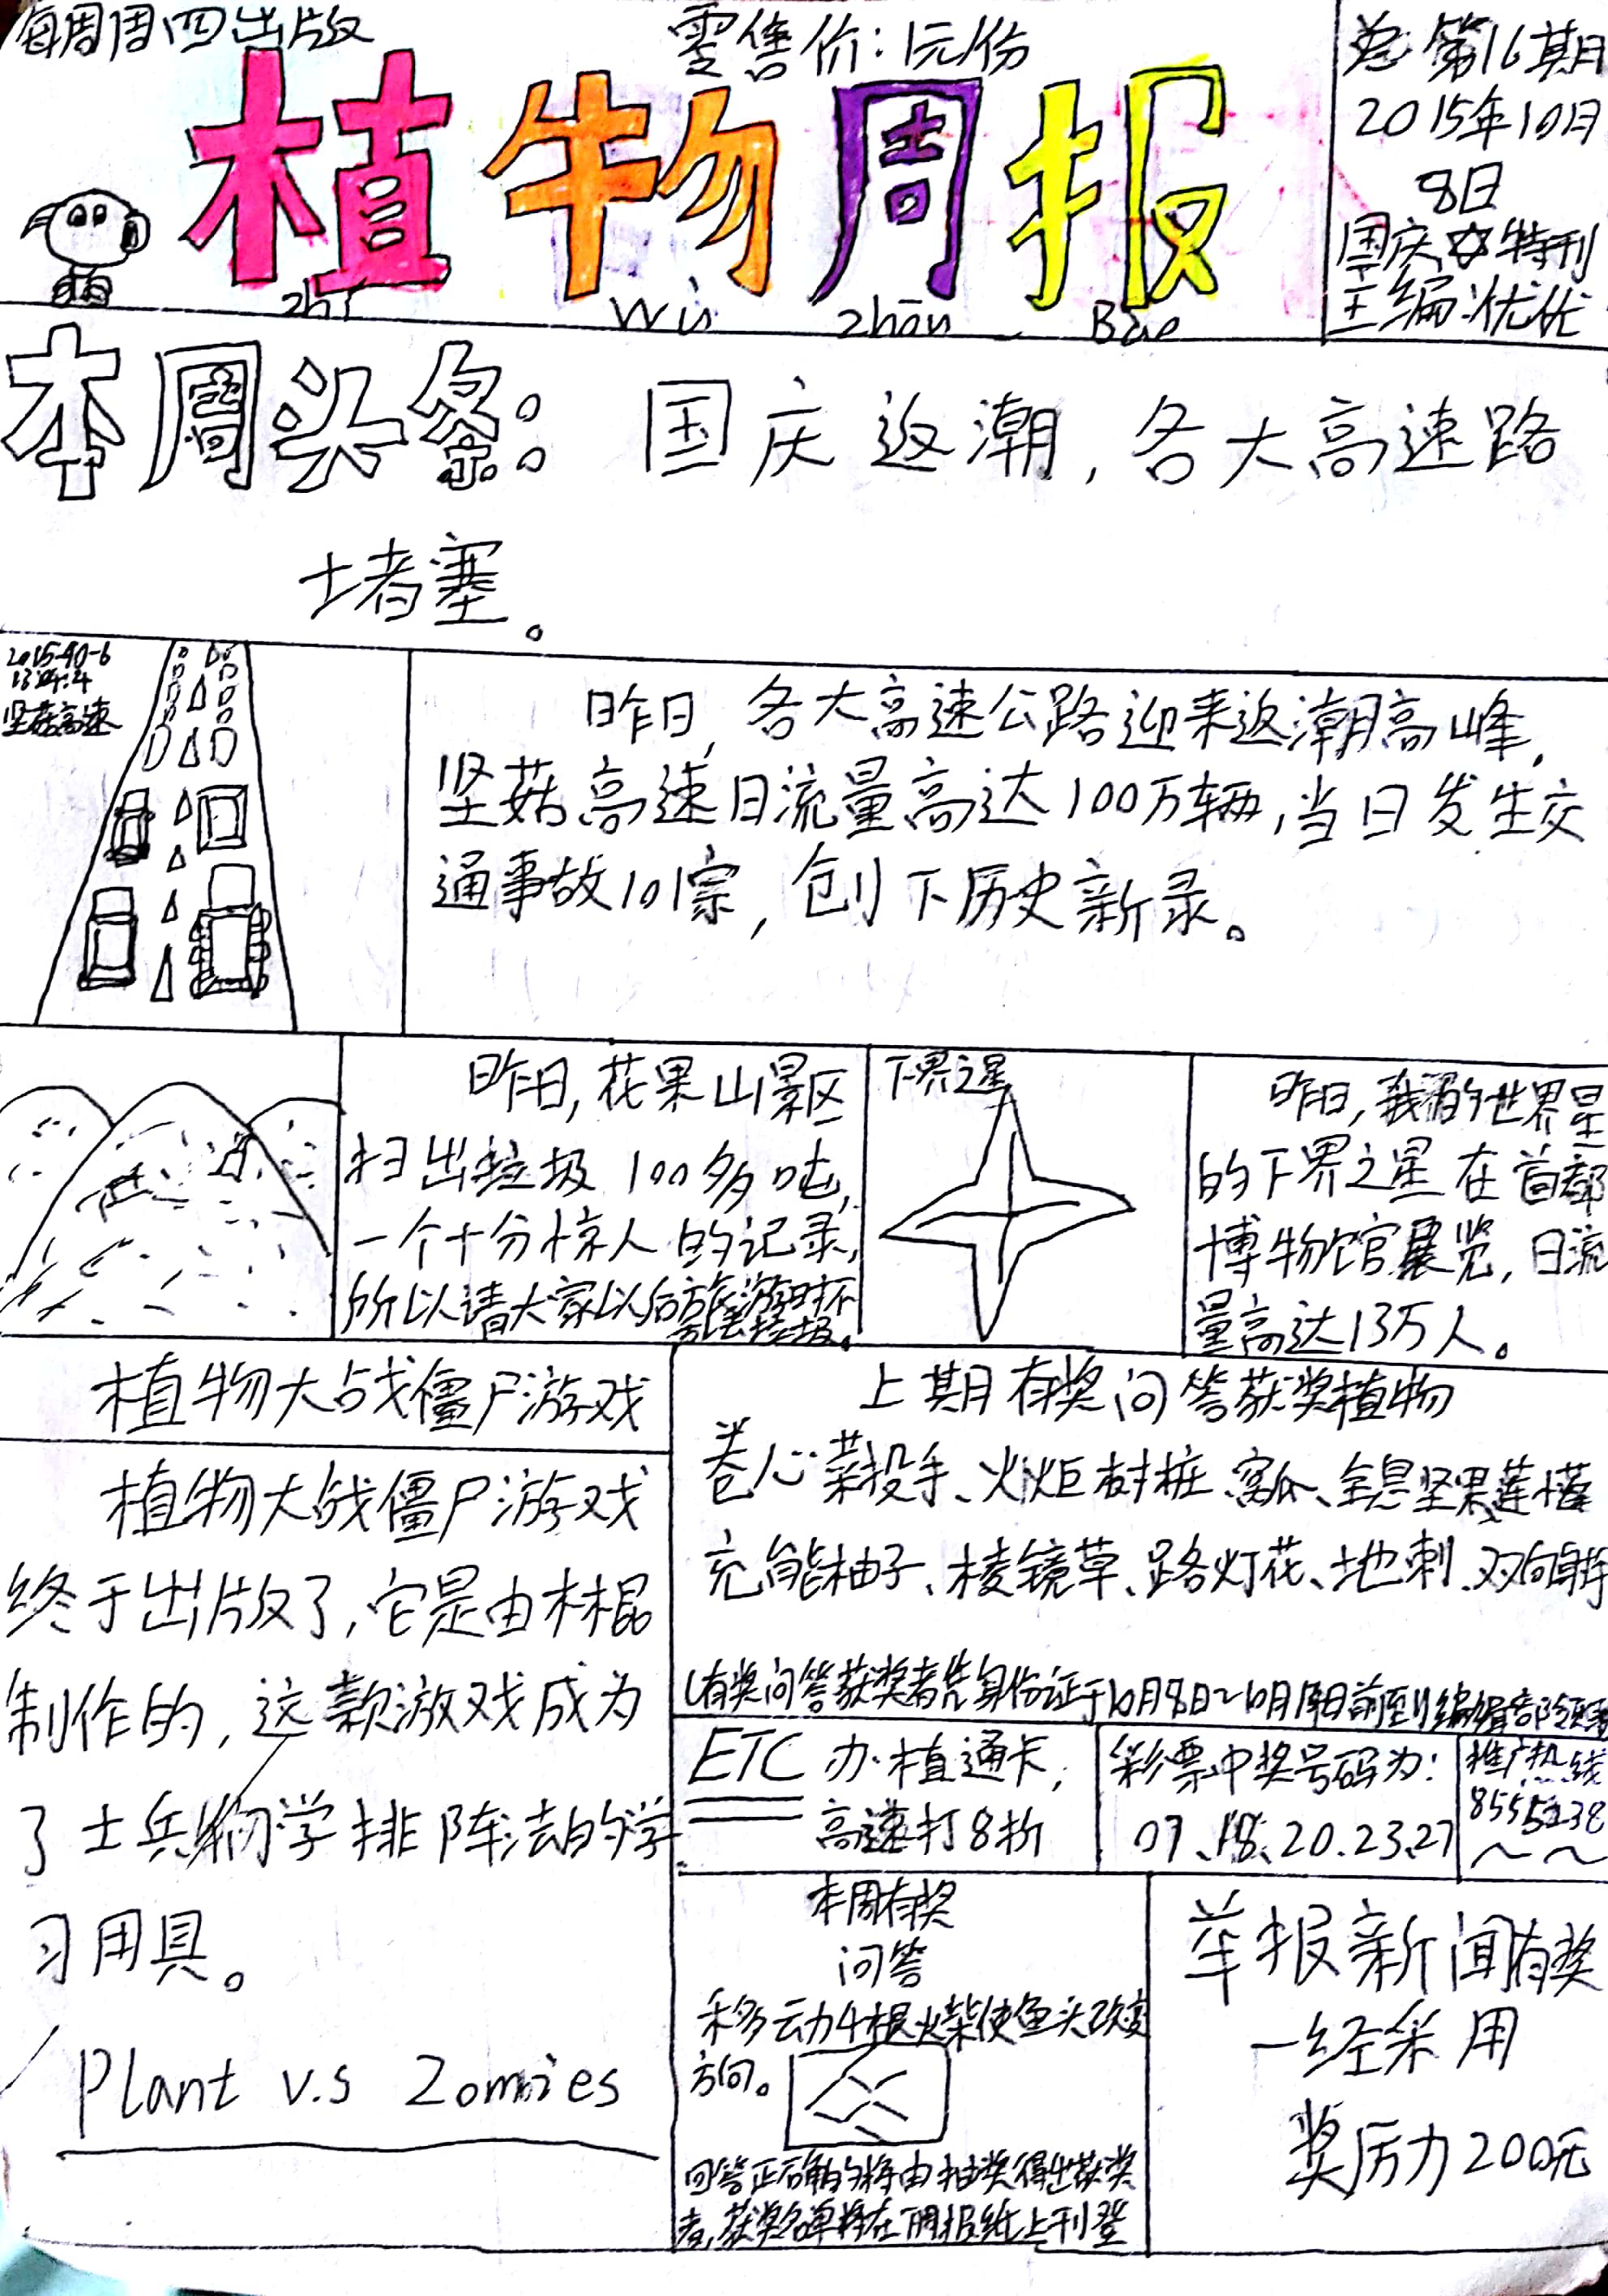 每周周四出版
零售价:1元/份
总第16期
2015年10月
8日
国庆特刊
主编:优优
植物周报
zhí wù zhōu Bào
本周头条:国庆返潮,各大高速路
堵塞。
2015-10-6
坚菇高速
昨日,各大高速公路迎来返潮高峰,
坚菇高速日流量高达100万辆,当日发生交
通事故101宗,创下历史新录。
昨日,花果山景区
扫出垃圾100多吨,
一个十分惊人的记录,
所以请大家以后旅游时不
垃圾。
下界之星
昨日,我的世界星
的下界之星在首都
博物馆展览,日流
量高达13万人。
植物大战僵尸游戏
植物大战僵尸游戏
终于出版了,它是由木棍
制作的,这款游戏成为
了士兵们学排阵法的学
习用具。
Plant v.s Zomies
上期有奖问答获奖植物
卷心菜投手、火炬树桩、窝瓜、全息坚果、莲藕
充能柚子、棱镜草、路灯花、地刺、双向射
(有奖问答获奖者凭身份证于10月8日~10月日前到编辑部领
ETC 办植通卡,
高速打8折
彩票中奖号码为:
07、18、20、23、27
推广热线
85555238
本周有奖
问答
移动4根火柴使鱼头改变
方向。
回答正确的将由抽奖得出获奖
者,获奖名单将在下周报纸上刊登
举报新闻有奖
一经采用
奖厉力200元